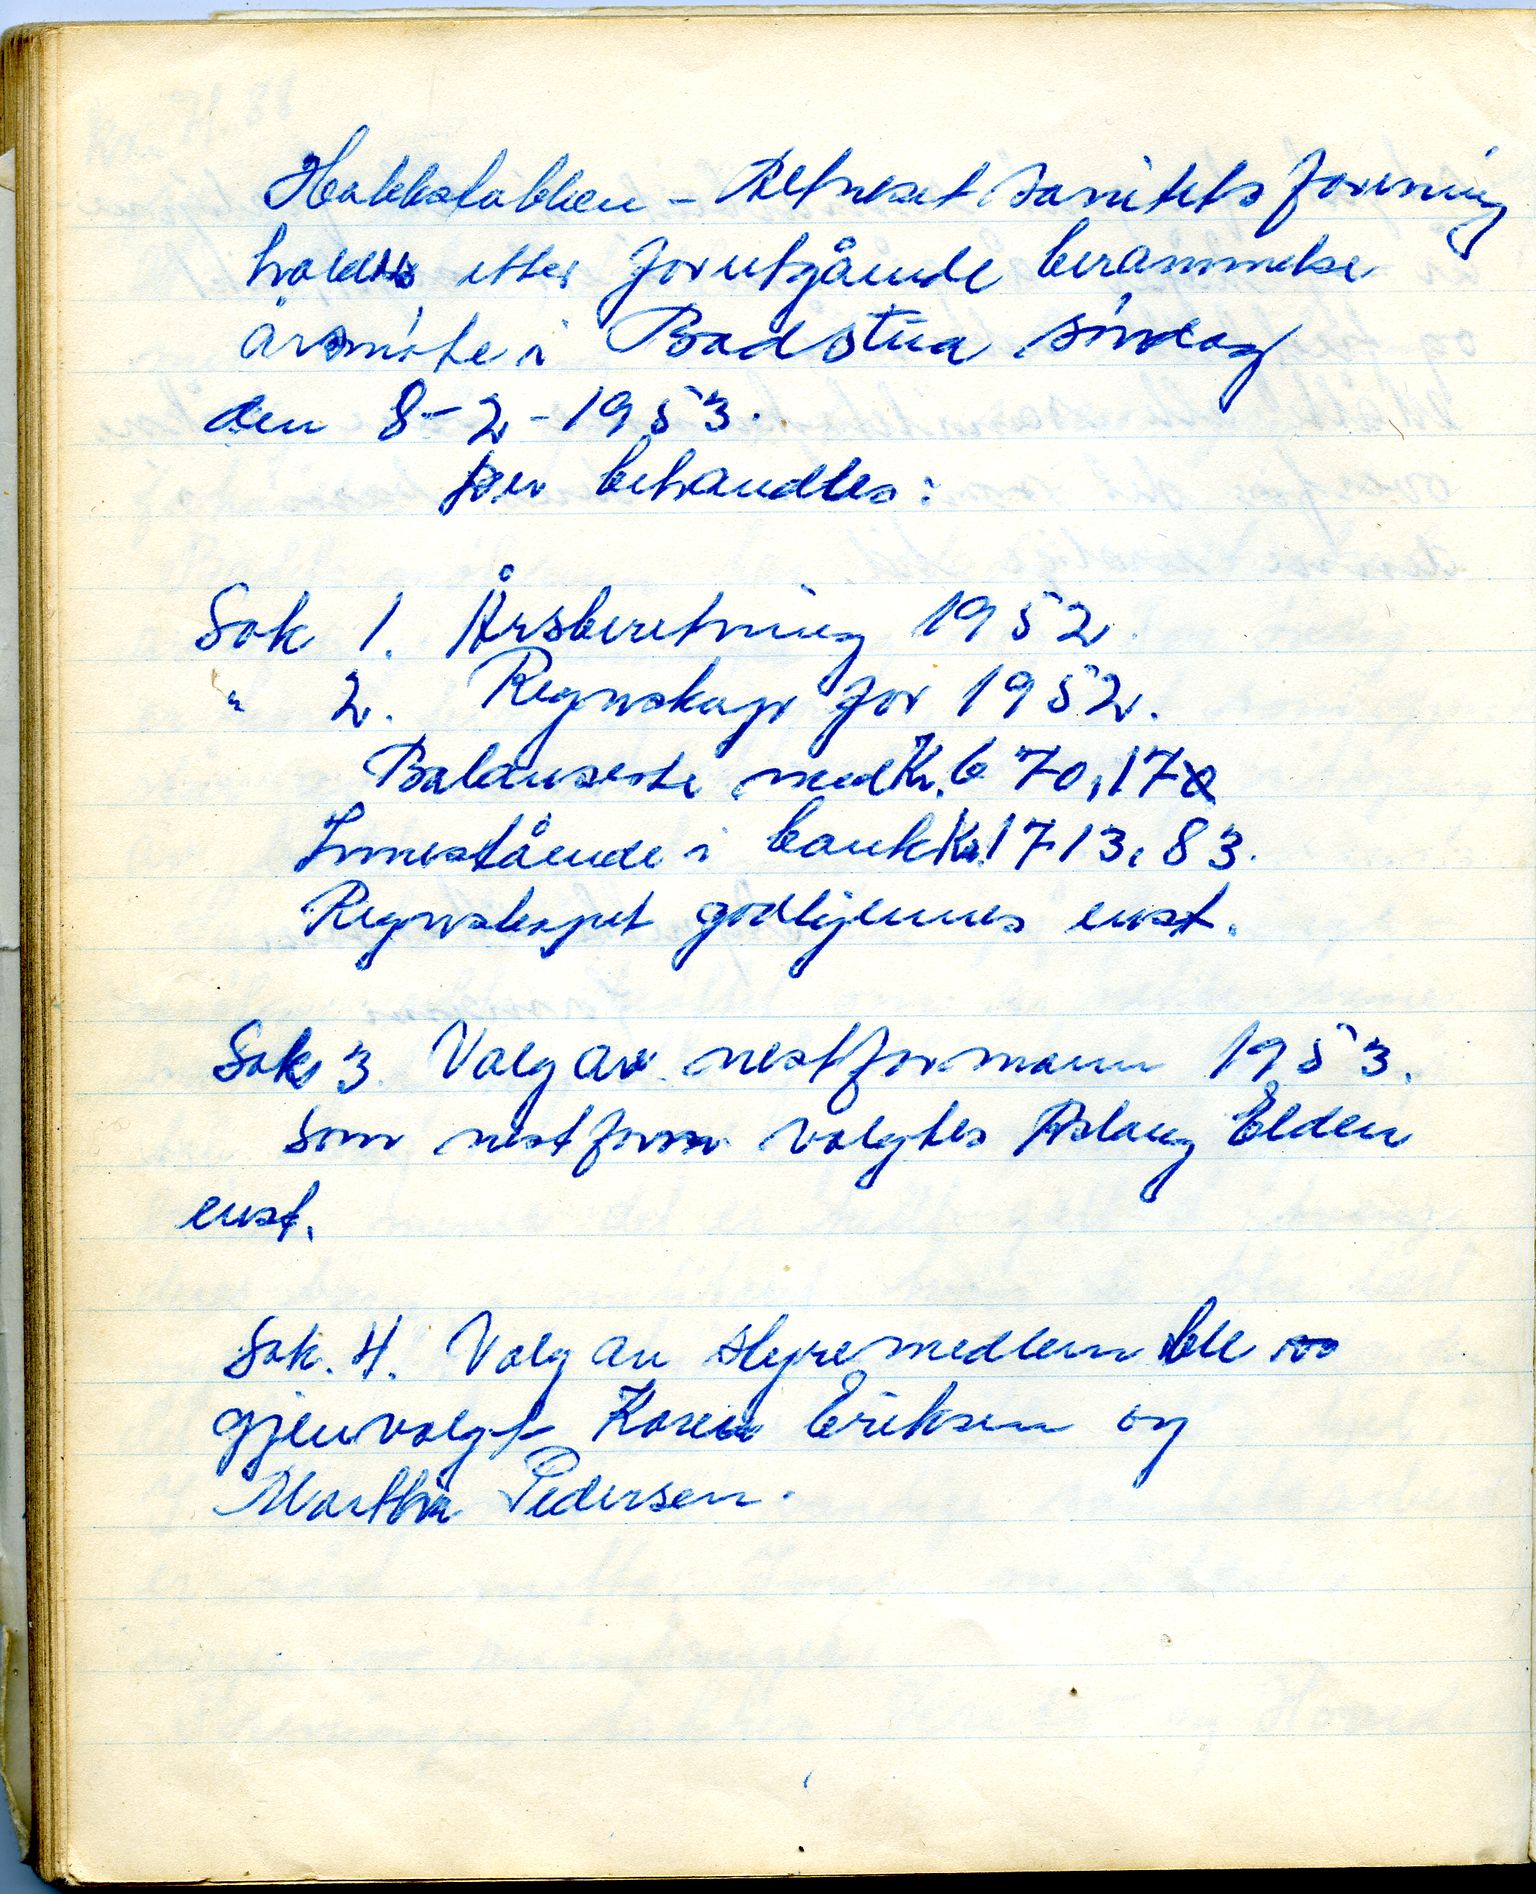 Hakkstabben - Altneset Sanitetsforening
holdts etter forutgående berammelse
årsmöte i Badstua söndag
den 8-2-1953.
Der behandles:
Sak 1. Årsberetning 1952
" 2. Regnskap for 1952.
Balanserte med Kr. 670,17
Innestående i bank Kr. 1713,83.
Regnskapet godkjennes enst.
Sak 3. Valg av nestformann 1953.
Som nestform valgtes Aslaug Elden
enst.
Sak. 4. Valg av styremedlem ble
gjenvalgt Karen Eriksen og
Marthia Pedersen.